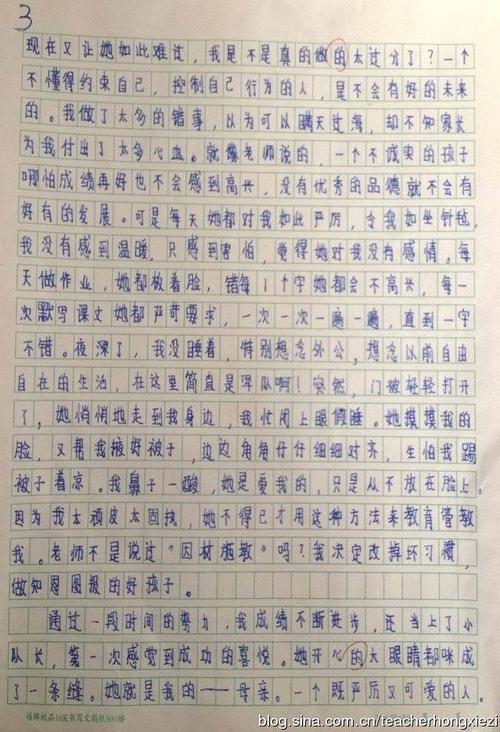 3
现在又让她如此难过，我是不是真的做的太过分了？一个
不懂得约束自己，控制自己行为的人，是不会有好的未来
的。我做了太多的错事，以为可以瞒天过海，却不知家长
为我付出了太多心血。就像老师说的，一个不诚实的孩子
哪怕成绩再好也不会感到高兴，没有优秀的品德就不会有
好有的发展。可是每天她都对我如此严厉，令我如坐针毡，
我没有感到温暖，只感到害怕，觉得她对我没有感情。每
天做作业，她都放着脸，错每1个字她都会不高兴，每一
次默写课文她都严苛要求，一次一次一遍一遍，直到一字
不错。夜深了，我没睡着，特别想念外公，想念以前自由
自在的生活，在这里简直是军队啊！突然，门被轻轻打开
了，她悄悄地走到我身边，我忙闭上眼假睡。她摸摸我的
脸，又帮我掖好被子，边边角角仔仔细细对齐，生怕我踢
被子着凉。我鼻子一酸，她是爱我的，只是从不放在脸上。
因为我太顽皮太固执，她不得已才用这种方法来教育管教
我。老师不是说过“因材施教”吗？我决定改掉坏习惯，
做知恩图报的好孩子。
通过一段时间的努力，我成绩不断进步，还当上了小
队长，第一次感觉到成功的喜悦。她开心的大眼睛都眯成
了一条缝。她就是我的——母亲。一个既严厉又可爱的人。
福牌纸品16K书写文稿纸500格
blog.sina.com.cn/teacherhongxiezi